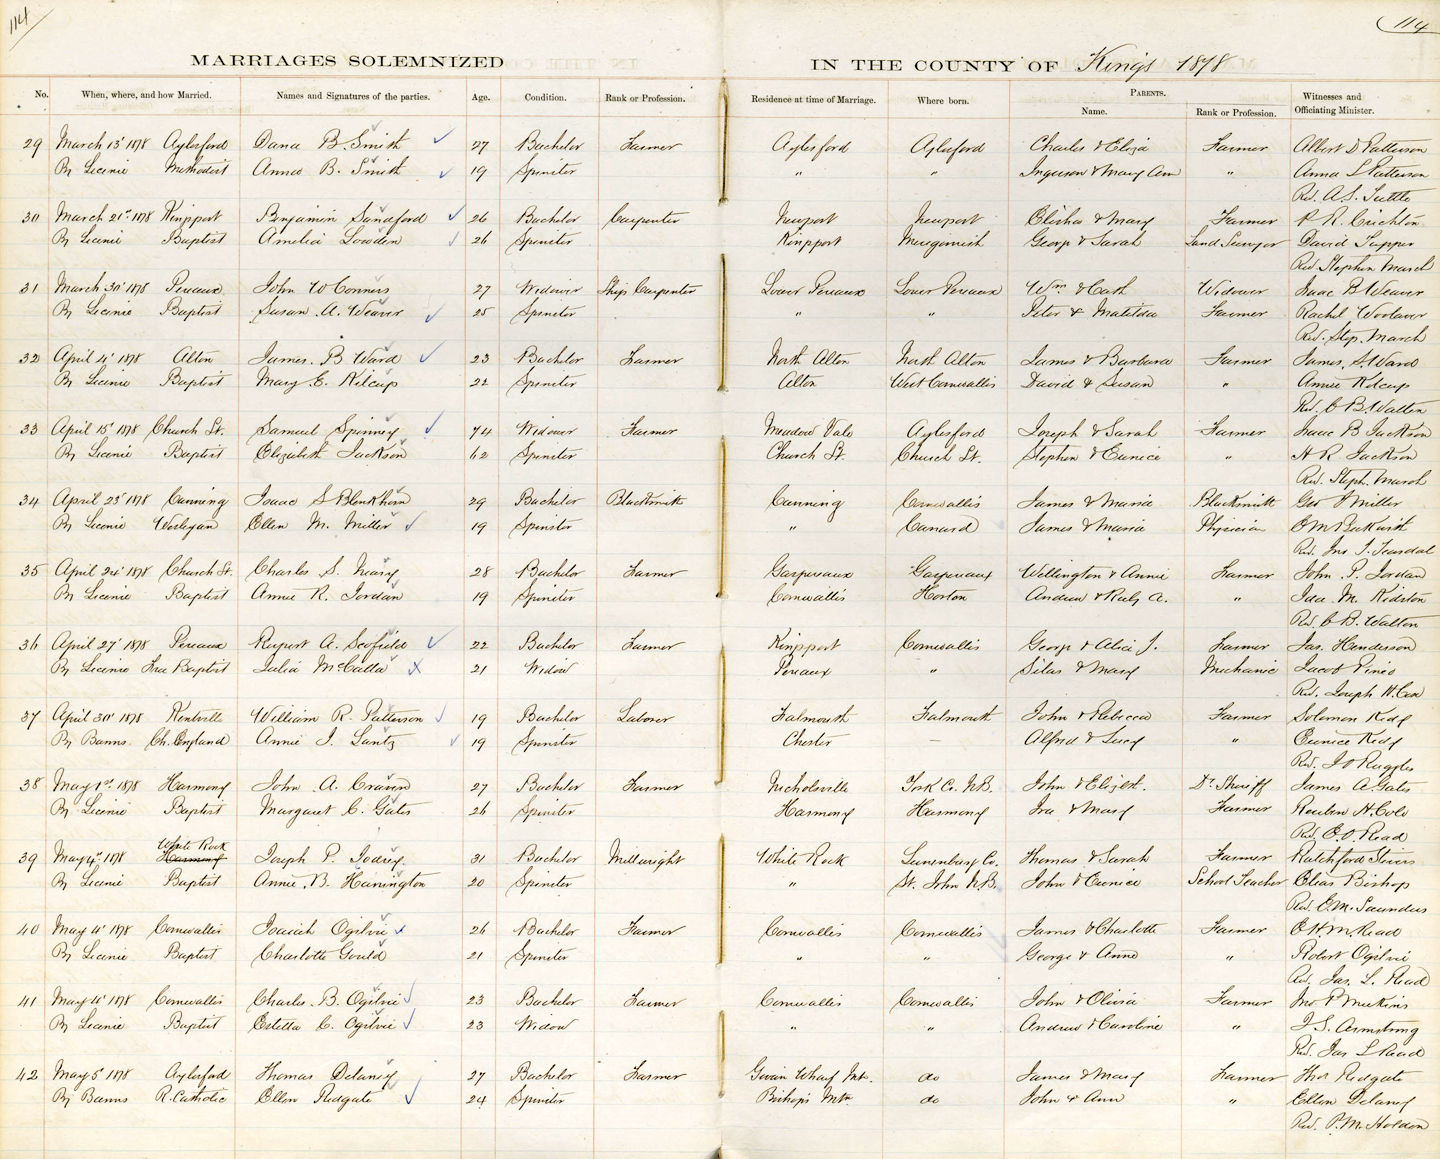 114
114
MARRIAGES SOLEMNIZED IN THE COUNTY OF Kings 1878
No. When, where, and how Married. Names and Signatures of the parties. Age. Condition. Rank or Profession. Residence at time of Marriage. Where born. PARENTS. Name. Rank or Profession. Witnesses and Officiating Minister.
29 March 13' 1878 Aylesford Dana B. Smith 27 Bachelor Farmer Aylesford Aylesford Charles & Eliza Farmer Albert D Patterson
By Licence Methodist Annie B. Smith 19 Spinster " " Ingerson & Mary Ann " Anna L Patterson
Rev. A. S. Tuttle
30 March 21st 1878 Kingsport Benjamin Sandford 26 Bachelor Carpenter Newport Newport Elisha & Mary Farmer P. R. Crichton
By Licence Baptist Amelia Lowden 26 Spinster Kingsport Merigomish George & Sarah Land Surveyor David Tupper
Rev. Stephen March
31 March 30' 1878 Pereaux John W Conners 27 Widower Ship Carpenter Lower Pereaux Lower Pereaux Wm & Cath Widower Isaac B Weaver
By Licence Baptist Susan A. Weaver 25 Spinster " " Peter & Matilda Farmer Rachel Woolaver
Rev. Step. March
32 April 4' 1878 Alton James B Ward 23 Bachelor Farmer North Alton North Alton James & Barbara Farmer James S. Ward
By Licence Baptist Mary E. Kilcup 22 Spinster Alton West Cornwallis David & Susan " Annie Kilcup
Rev. C B. Walton
33 April 15' 1878 Church St. Samuel Spinney 74 Widower Farmer Meadow Vale Aylesford Joseph & Sarah Farmer Isaac B Jackson
By Licence Baptist Elizabeth Jackson 62 Spinster Church St. Church St. Stephen & Eunice " H R Jackson
Rev. Steph. March
34 April 23' 1878 Canning Isaac S Blenkhorn 29 Bachelor Blacksmith Canning Cornwallis James & Maria Blacksmith Geo Miller
By Licence Wesleyan Ellen M. Miller 19 Spinster " Canard James & Maria Physician O M Beckwith
Rev. Jno. J. Teasdal
35 April 24' 1878 Church St. Charles S. Neary 28 Bachelor Farmer Gaspereaux Gaspereaux Wellington & Annie Farmer John P. Jordan
By Licence Baptist Annie R. Jordan 19 Spinster Cornwallis Horton Andrew & Ruby A. " Ida M. Kidston
Rev. C B. Walton
36 April 27' 1878 Pereaux Rupert A. Scofield 22 Bachelor Farmer Kingsport Cornwallis George & Alice J. Farmer Jas. Henderson
By Licence Free Baptist Julia McCalla 21 Widow Pereaux " Silas & Mary Mechanic Jacob Pineo
Rev. Joseph H. Cox
37 April 30' 1878 Kentville William R. Patterson 19 Bachelor Laborer Falmouth Falmouth John & Rebecca Farmer Solomon Kedy
By Banns Ch. England Annie J. Lantz 19 Spinster Chester — Alfred & Lucy " Eunice Kedy
Rev. J O Ruggles
38 May 1st 1878 Harmony John A. Craven 27 Bachelor Farmer Nicholsville York Co. N.B. John & Elizbt. Dr. Sheriff James A. Gates
By Licence Baptist Margaret C. Gates 26 Spinster Harmony Harmony Ira & Mary Farmer Reuben H. Cole
Rev. E. O. Read
White Rock
39 May 4' 1878 Harmony Joseph P. Jodrey 31 Bachelor Millwright White Rock Lunenburg Co. Thomas & Sarah Farmer Ratchford Stivers
By Licence Baptist Annie B. Hanington 20 Spinster " St. John N.B. John & Eunice School Teacher Elias Bishop
Rev. E. M. Saunders
40 May 4' 1878 Cornwallis Josiah Ogilvie 26 Bachelor Farmer Cornwallis Cornwallis James & Charlotte Farmer E H. M. Read
By Licence Baptist Charlotte Gould 21 Spinster " " George & Anne " Robert Ogilvie
Rev. Jas. L. Read
41 May 4' 1878 Cornwallis Charles B. Ogilvie 23 Bachelor Farmer Cornwallis Cornwallis John & Olivia Farmer Jno P Meekins
By Licence Baptist Estella C. Ogilvie 23 Widow " " Andrew & Caroline " J. S. Armstrong
Rev. Jas L Read
42 May 5' 1878 Aylesford Thomas Delaney 27 Bachelor Farmer Givan Wharf Mt. do James & Mary Farmer Thos Redgate
By Banns R. Catholic Ellen Redgate 24 Spinster Bishop's Mtn do John & Ann " Ellen Delaney
Rev. P. M. Holden